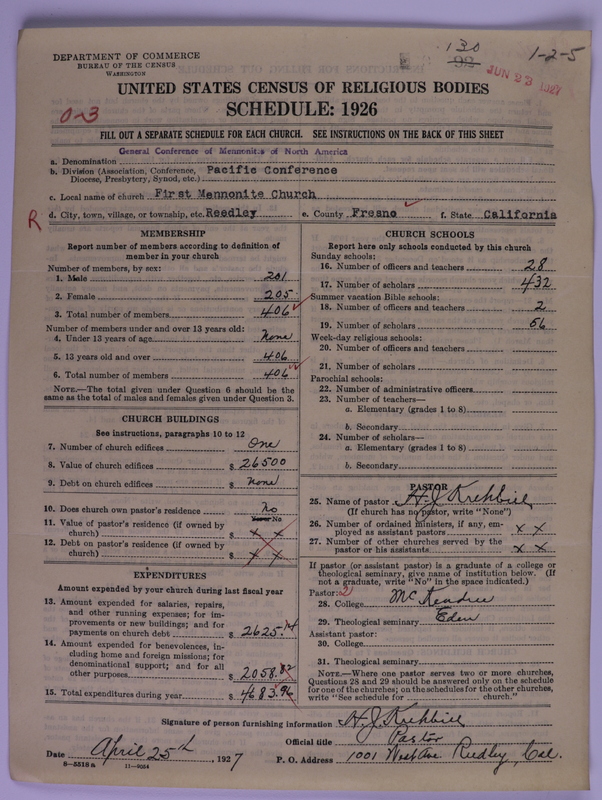 130
92
1-2-5
JUN 23 1927
DEPARTMENT OF COMMERCE
BUREAU OF THE CENSUS
WASHINGTON
UNITED STATES CENSUS OF RELIGIOUS BODIES
0-3
SCHEDULE: 1926
FILL OUT A SEPARATE SCHEDULE FOR EACH CHURCH. SEE INSTRUCTIONS ON THE BACK OF THIS SHEET
General Conference of Mennonites of North America
a. Denomination
b. Division (Association, Conference, Pacific Conference
Diocese, Presbytery, Synod, etc.)
c. Local name of church First Mennonite Church
R d. City, town, village, or township, etc. Reedley e. County Fresno f. State California
MEMBERSHIP
Report number of members according to definition of
member in your church
Number of members, by sex:
1. Male 201
2. Female 205
3. Total number of members 406
Number of members under and over 13 years old:
4. Under 13 years of age None
5. 13 years old and over 406
6. Total number of members 406
NOTE.—The total given under Question 6 should be the
same as the total of males and females given under Question 3.
CHURCH BUILDINGS
See instructions, paragraphs 10 to 12
7. Number of church edifices One
8. Value of church edifices $ 26500
9. Debt on church edifices $ None
10. Does church own pastor's residence No
Yes or No
11. Value of pastor's residence (if owned by
church) $ x x
12. Debt on pastor's residence (if owned by
church) $ x x
EXPENDITURES
Amount expended by your church during last fiscal year
13. Amount expended for salaries, repairs,
and other running expenses; for im-
provements or new buildings; and for
payments on church debt $ 2625.14
14. Amount expended for benevolences, in-
cluding home and foreign missions; for
denominational support; and for all
other purposes $ 2058.82
15. Total expenditures during year $ 4683.96
CHURCH SCHOOLS
Report here only schools conducted by this church
Sunday schools:
16. Number of officers and teachers 28
17. Number of scholars 432
Summer vacation Bible schools:
18. Number of officers and teachers 2
19. Number of scholars 56
Week-day religious schools:
20. Number of officers and teachers
21. Number of scholars
Parochial schools:
22. Number of administrative officers
23. Number of teachers—
a. Elementary (grades 1 to 8)
b. Secondary
24. Number of scholars—
a. Elementary (grades 1 to 8)
b. Secondary
PASTOR
25. Name of pastor H. J. Krehbiel
(If church has no pastor, write "None")
26. Number of ordained ministers, if any, em-
ployed as assistant pastors x x
27. Number of other churches served by the
pastor or his assistants x x
If pastor (or assistant pastor) is a graduate of a college or
theological seminary, give name of institution below. (If
not a graduate, write "No" in the space indicated.)
Pastor: 2
28. College McKendree
29. Theological seminary Eden
Assistant pastor:
30. College
31. Theological seminary
NOTE.—Where one pastor serves two or more churches,
Questions 28 and 29 should be answered only on the schedule
for one of the churches; on the schedules for the other churches,
write "See schedule for church."
Signature of person furnishing information H. J. Krehbiel
Official title Pastor
Date April 25th, 1927 P. O. Address 1001 West Ave Reedley, Cal.
8-5518a 11-9034